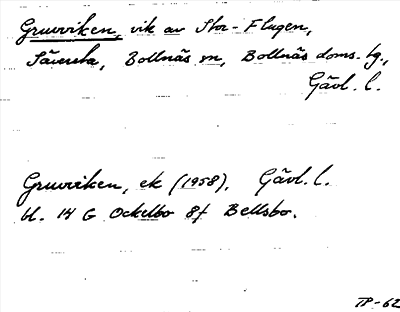 Gruvviken, vik av Stor-Flugen,
Säversta, Bollnäs sn, Bollnäs doms.tg.,
Gävl. l.
Gruvviken, ek (1958), Gävl. l.
bl. 14 G Ockelbo 8f Bellsbo.
TP-62